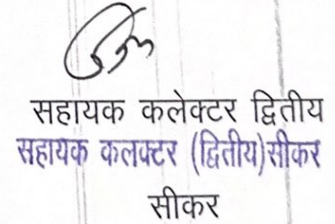 सहायक कलेक्टर द्वितीय
सहायक कलक्टर (द्वितीय)सीकर
सीकर